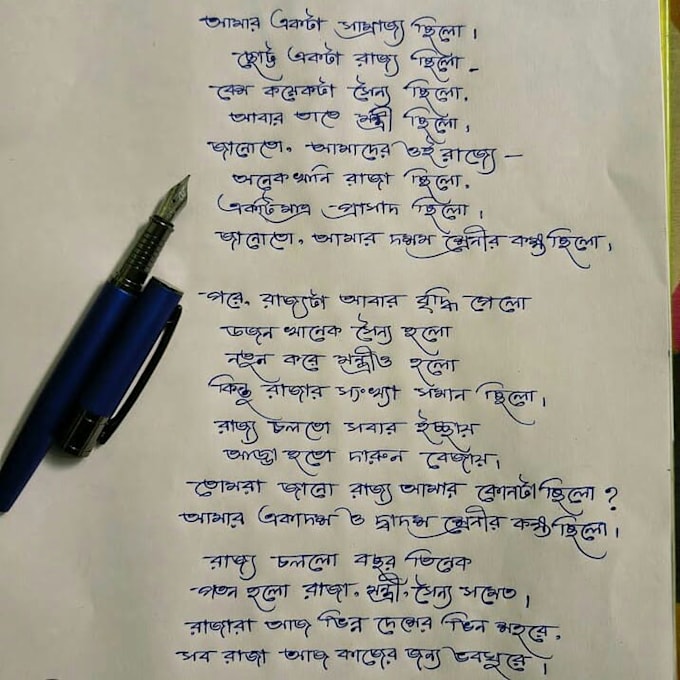 আমার একটা সাম্রাজ্য ছিলো।
ছোট্ট একটা রাজ্য ছিলো -
বেশ কয়েকটা সৈন্য ছিলো,
আবার তাতে মন্ত্রী ছিলো,
জানোতো, আমাদের ওই রাজ্যে -
অনেক খানি রাজা ছিলো,
একটি মাত্র প্রাসাদ ছিলো।
জানোতো, আমার দশম শ্রেনীর কক্ষ ছিলো।
পরে, রাজ্যটা আবার বৃদ্ধি পেলো
ডজন খানেক সৈন্য হলো
নতুন করে মন্ত্রীও হলো
কিন্তু রাজার সংখ্যা সমান ছিলো।
রাজ্য চলতো সবার ইচ্ছায়
আড্ডা হতো দারুন বেজায়।
তোমরা জানো রাজ্য আমার কোনটা ছিলো?
আমার একাদশ ও দ্বাদশ শ্রেনীর কক্ষ ছিলো।
রাজ্য চললো বছর তিনেক
পতন হলো রাজা, মন্ত্রী, সৈন্য সমেত।
রাজারা আজ ভিন্ন দেশের ভিন শহরে,
সব রাজা আজ কাজের জন্য ভবঘুরে।